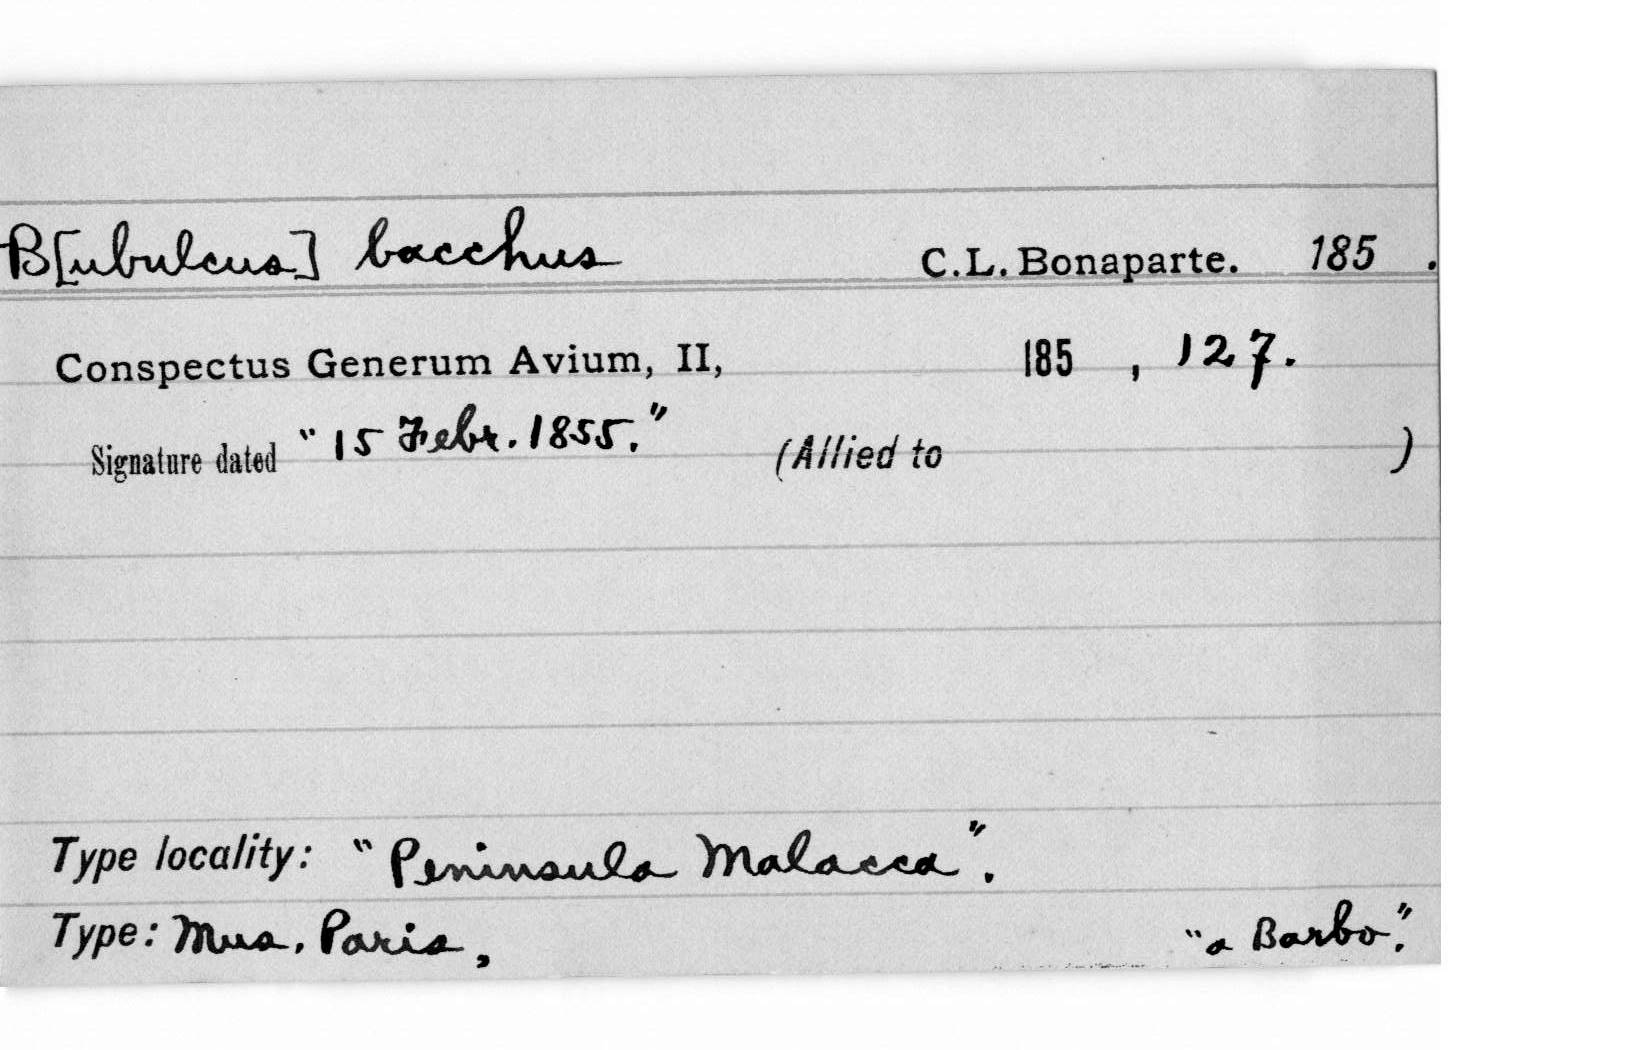 B[ubulcus] bacchus C.L. Bonaparte. 185 .
Conspectus Generum Avium, II, 185 , 127.
Signature dated "15 Febr. 1855." (Allied to )
Type locality: "Peninsula Malacca".
Type: Mus. Paris, "a Barbo".